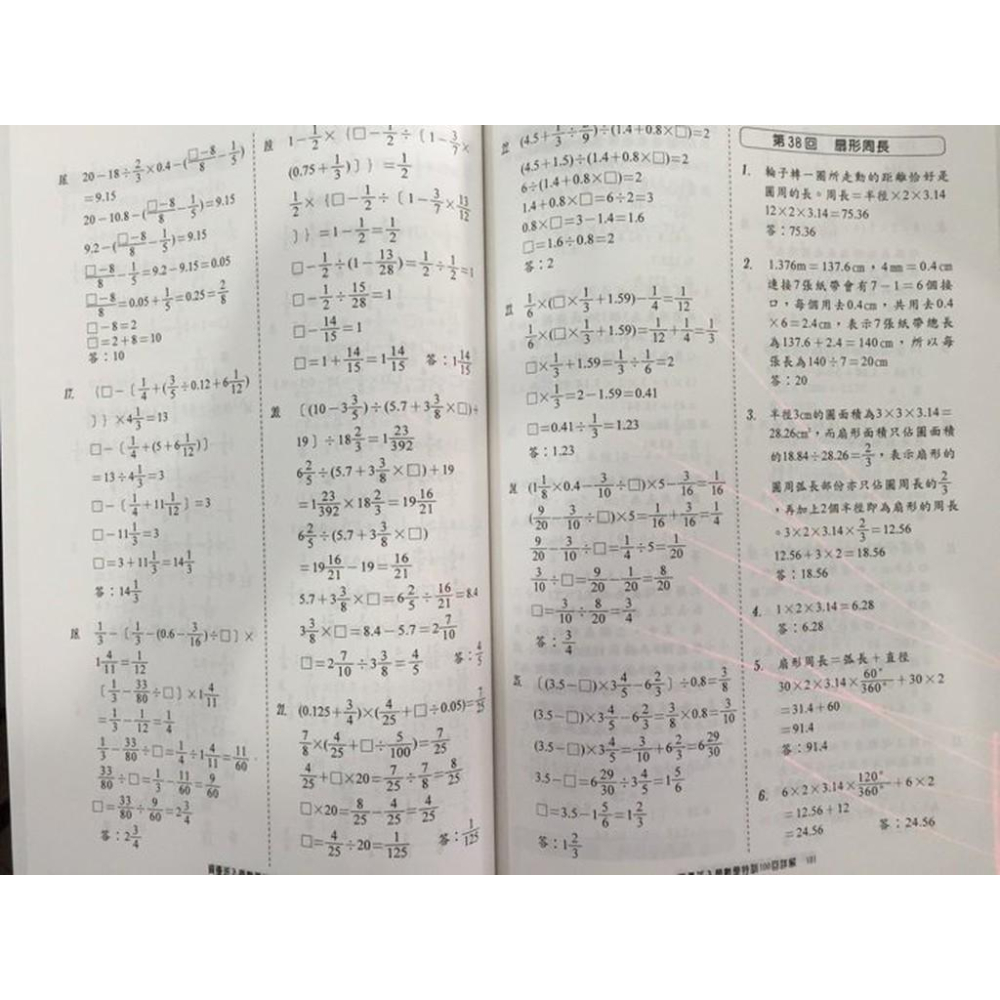 16. 20－18÷2/3×0.4－(□－8/8－1/5)
＝9.15
20－10.8－(□－8/8－1/5)＝9.15
9.2－(□－8/8－1/5)＝9.15
□－8/8－1/5＝9.2－9.15＝0.05
□－8/8＝0.05＋1/5＝0.25＝2/8
□－8＝2
□＝2＋8＝10
答：10
17. {□－〔1/4＋(3/5÷0.12＋6 1/12)
〕}×4 1/3＝13
□－〔1/4＋(5＋6 1/12)〕
＝13÷4 1/3＝3
□－〔1/4＋11 1/12〕＝3
□－11 1/3＝3
□＝3＋11 1/3＝14 1/3
答：14 1/3
18. 1/3－〔1/3－(0.6－3/16)÷□〕×
1 4/11＝1/12
〔1/3－33/80÷□〕×1 4/11
＝1/3－1/12＝1/4
1/3－33/80÷□＝1/4÷1 4/11＝11/60
33/80÷□＝1/3－11/60＝9/60
□＝33/80÷9/60＝2 3/4
答：2 3/4
19. 1－1/2×{□－1/2÷〔1－3/7×
(0.75＋1/3)〕}＝1/2
1/2×{□－1/2÷〔1－3/7×13/12
〕}＝1－1/2＝1/2
□－1/2÷(1－13/28)＝1/2÷1/2＝1
□－1/2÷15/28＝1
□－14/15＝1
□＝1＋14/15＝1 14/15 答：1 14/15
20. 〔(10－3 3/5)÷(5.7＋3 3/8×□)＋
19〕÷18 2/3＝1 23/392
6 2/5÷(5.7＋3 3/8×□)＋19
＝1 23/392×18 2/3＝19 16/21
6 2/5÷(5.7＋3 3/8×□)
＝19 16/21－19＝16/21
5.7＋3 3/8×□＝6 2/5÷16/21＝8.4
3 3/8×□＝8.4－5.7＝2 7/10
□＝2 7/10÷3 3/8＝4/5 答：4/5
21. (0.125＋3/4)×(4/25＋□÷0.05)＝7/25
7/8×(4/25＋□÷5/100)＝7/25
4/25＋□×20＝7/25÷7/8＝8/25
□×20＝8/25－4/25＝4/25
□＝4/25÷20＝1/125 答：1/125
22. ÷(1.4＋0.8×□)＝2
(4.5＋1.5)÷(1.4＋0.8×□)＝2
6÷(1.4＋0.8×□)＝2
1.4＋0.8×□＝6÷2＝3
0.8×□＝3－1.4＝1.6
□＝1.6÷0.8＝2
答：2
23. 1/6×(□×1/3＋1.59)－1/4＝1/12
1/6×(□×1/3＋1.59)＝1/12＋1/4＝1/3
□×1/3＋1.59＝1/3÷1/6＝2
□×1/3＝2－1.59＝0.41
□＝0.41÷1/3＝1.23
答：1.23
24. (1 1/8×0.4－3/10÷□)×5－3/16＝1/16
(9/20－3/10÷□)×5＝1/16＋3/16＝1/4
9/20－3/10÷□＝1/4÷5＝1/20
3/10÷□＝9/20－1/20＝8/20
□＝3/10÷8/20＝3/4
答：3/4
25. 〔(3.5－□)×3 4/5－6 2/3〕÷0.8＝3/8
(3.5－□)×3 4/5－6 2/3＝3/8×0.8＝3/10
(3.5－□)×3 4/5＝3/10＋6 2/3＝6 29/30
3.5－□＝6 29/30÷3 4/5＝1 5/6
□＝3.5－1 5/6＝1 2/3
答：1 2/3
第38回 扇形周長
1. 輪子轉一圈所走動的距離恰好是
圓周的長。周長＝半徑×2×3.14
12×2×3.14＝75.36
答：75.36
2. 1.376m＝137.6cm，4mm＝0.4cm
連接7張紙帶會有7－1＝6個接
口，每個用去0.4cm，共用去0.4
×6＝2.4cm，表示7張紙帶總長
為137.6＋2.4＝140cm，所以每
張長為140÷7＝20cm
答：20
3. 半徑3cm的圓面積為3×3×3.14＝
28.26cm²，而扇形面積只佔圓面積
的18.84÷28.26＝2/3，表示扇形的
圓周弧長部份亦只佔圓周長的2/3
，再加上2個半徑即為扇形的周長
。3×2×3.14×2/3＝12.56
12.56＋3×2＝18.56
答：18.56
4. 1×2×3.14＝6.28
答：6.28
5. 扇形周長＝弧長＋直徑
30×2×3.14×60°/360°＋30×2
＝31.4＋60
＝91.4
答：91.4
6. 6×2×3.14×120°/360°＋6×2
＝12.56＋12
＝24.56 答：24.56